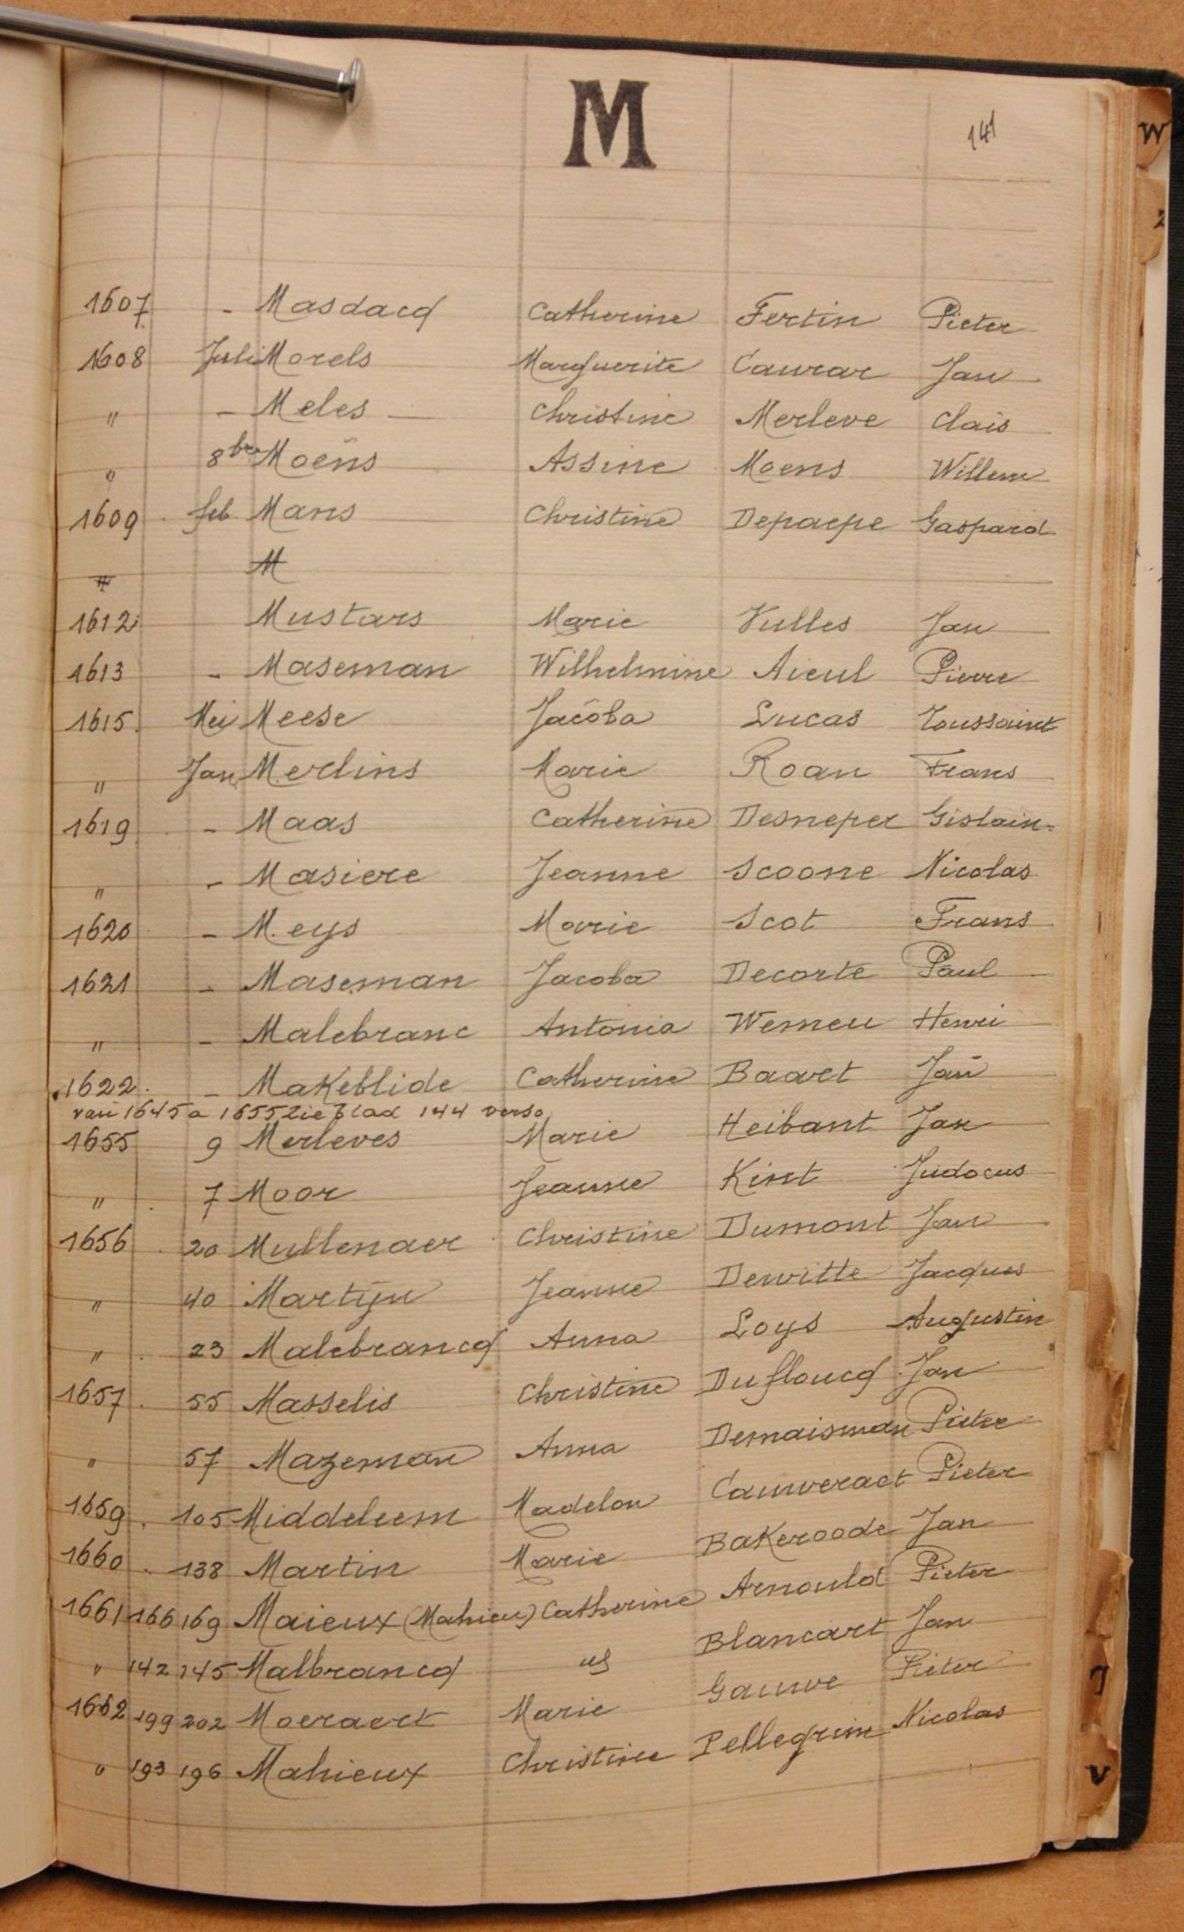 M
141
1607 - Masdacq Catherine Fertin Pieter
1608 Juli Morels Marguerite Caurar Jan
" - Meles Christine Merleve Clais
" 8ber Moëns Assine Moens Willem
1609 feb Mans Christine Depaepe Gaspard
M
1612 Mustars Marie Vulles Jan
1613 - Maseman Wilhelmine Aieul Pierre
1615 Mei Meese Jacoba Lucas Toussaint
" Jan Merlins Marie Roan Frans
1619 - Maas Catherine Desneper Gislain
" - Masiere Jeanne Scoone Nicolas
1620 - Meys Marie Scot Frans
1621 - Maseman Jacoba Decorte Paul
" - Malebranc Antonia Wemeu Henri
1622 - Makeblide Catherine Baart Jan
van 1645 a 1655 Zie blad 144 verso
1655 9 Merleves Marie Heibant Jan
" 7 Moor Jeanne Kint Judocus
1656 20 Mullenaer Christine Dumont Jan
" 40 Martyn Jeanne Dewitte Jacques
" 23 Malebrancq Anna Loys Augustin
1657 55 Masselis Christine Dufloucq Jan
" 57 Mazeman Anna Demaisman Pieter
1659 105 Middeleem Madelon Cauweraet Pieter
1660 138 Martin Marie Bakeroode Jan
1661 166 169 Maieux (Mahieu) Catherine Arnould Pieter
" 142 145 Malbrancq Blancart Jan
1662 199 202 Moeraert Marie Gauwe Pieter
" 193 196 Mahieux Christine Pellegrim Nicolas
W
J
V